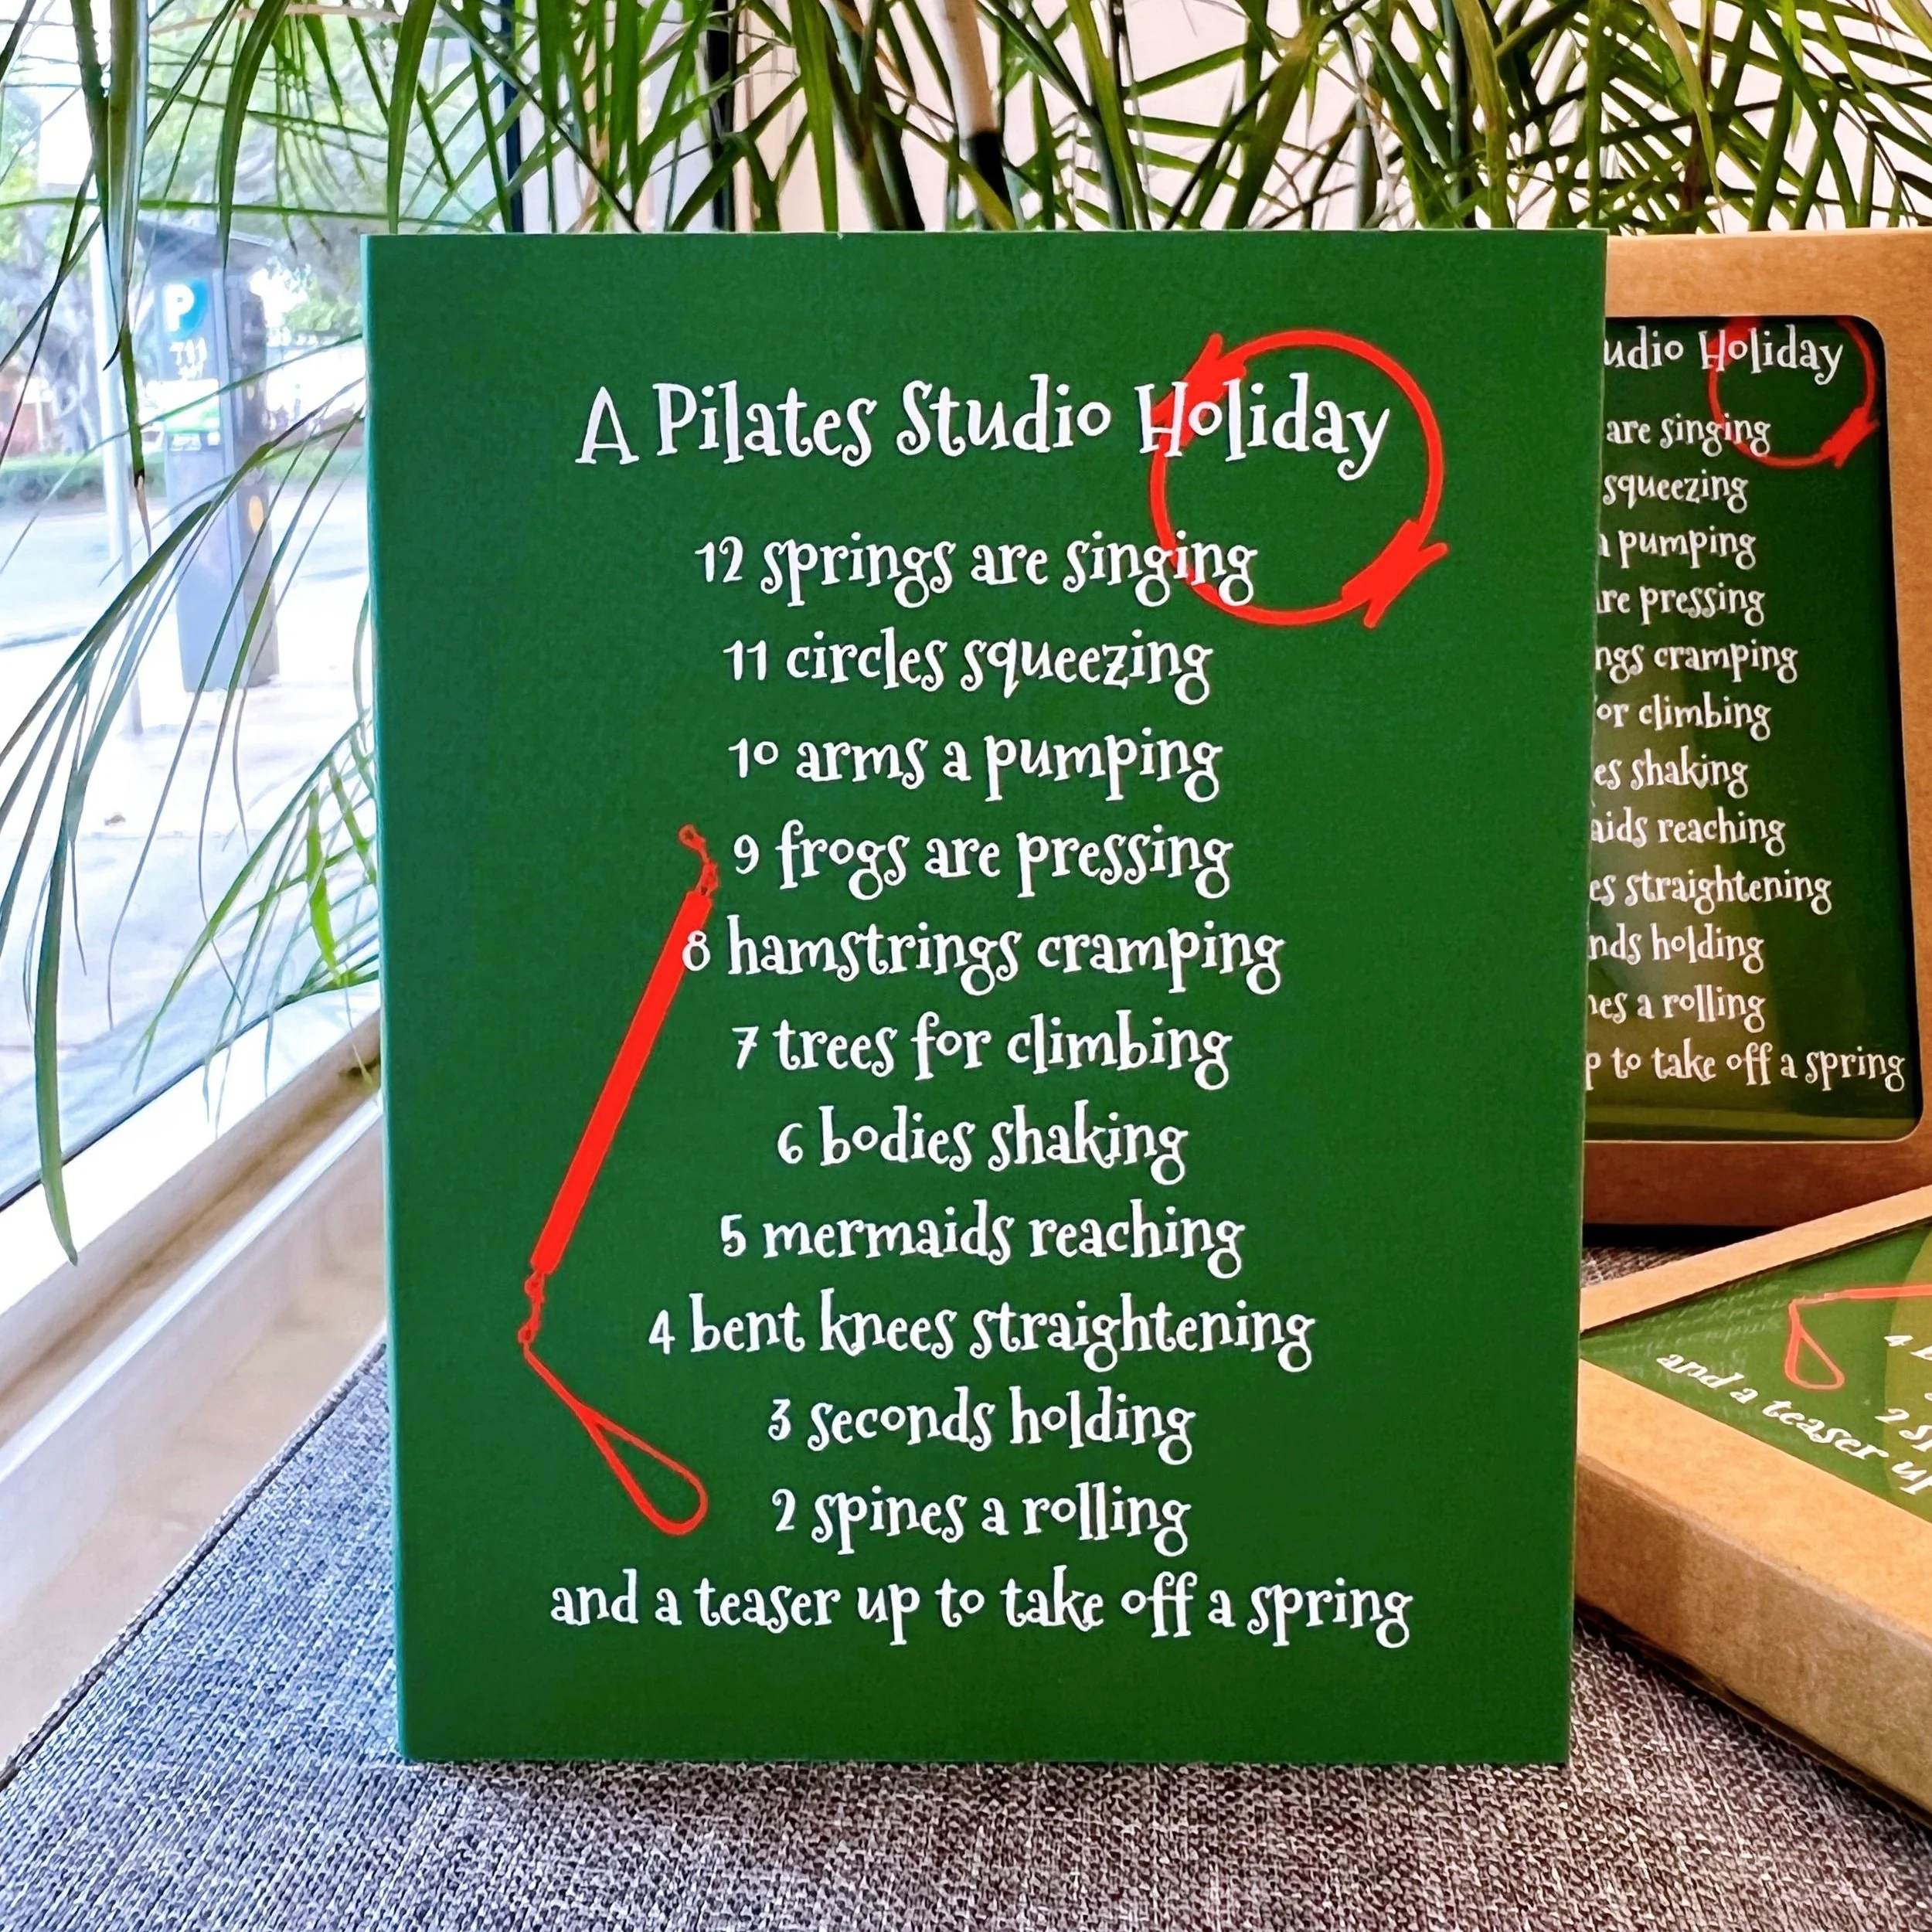 A Pilates Studio Holiday
12 springs are singing
11 circles squeezing
10 arms a pumping
9 frogs are pressing
8 hamstrings cramping
7 trees for climbing
6 bodies shaking
5 mermaids reaching
4 bent knees straightening
3 seconds holding
2 spines a rolling
and a teaser up to take off a spring
P
Holiday
are singing
squeezing
pumping
pressing
cramping
or climbing
shaking
reaching
straightening
holding
a rolling
to take off a spring
4
2
and a teaser up